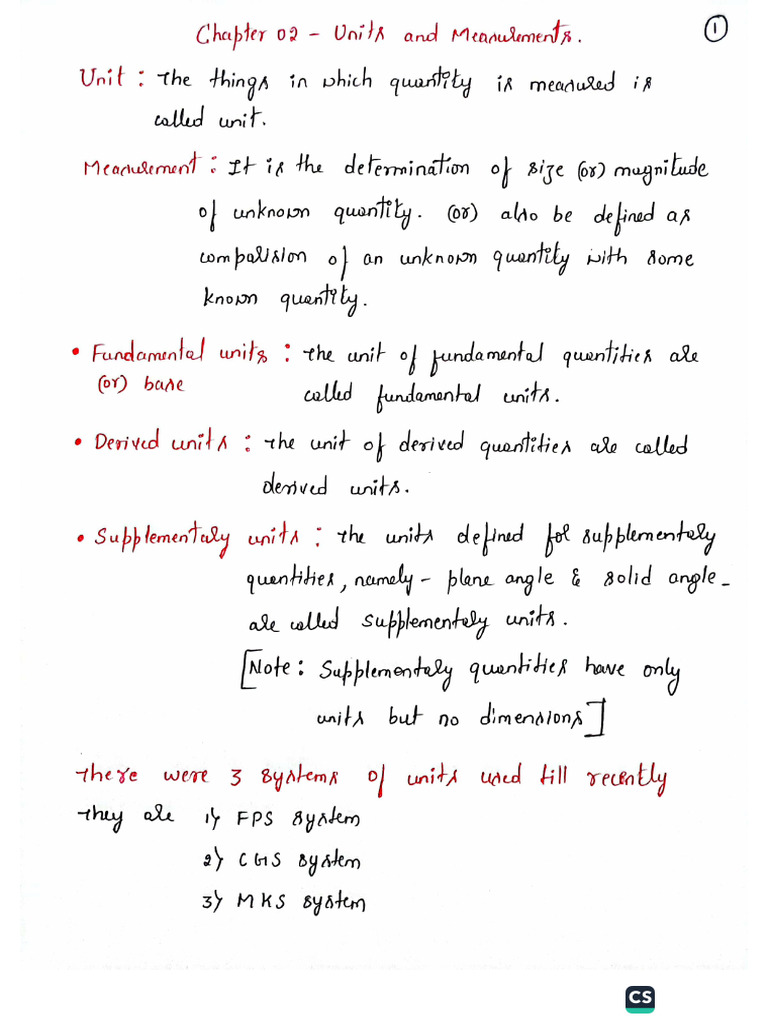 Chapter 02 - Units and Measurements. 1
Unit : The things in which quantity is measured is
called unit.
Measurement : It is the determination of size (or) magnitude
of unknown quantity. (or) also be defined as
comparision of an unknown quantity with some
known quantity.
• Fundamental units : The unit of fundamental quantities are
(or) base
called fundamental units.
• Derived units : The unit of derived quantities are called
derived units.
• Supplementary units : The units defined for supplementary
quantities, namely - plane angle & solid angle -
are called supplementary units.
[Note : Supplementary quantities have only
units but no dimensions]
There were 3 systems of units used till recently
They are 1) FPS system
2) CGS system
3) MKS system
CS